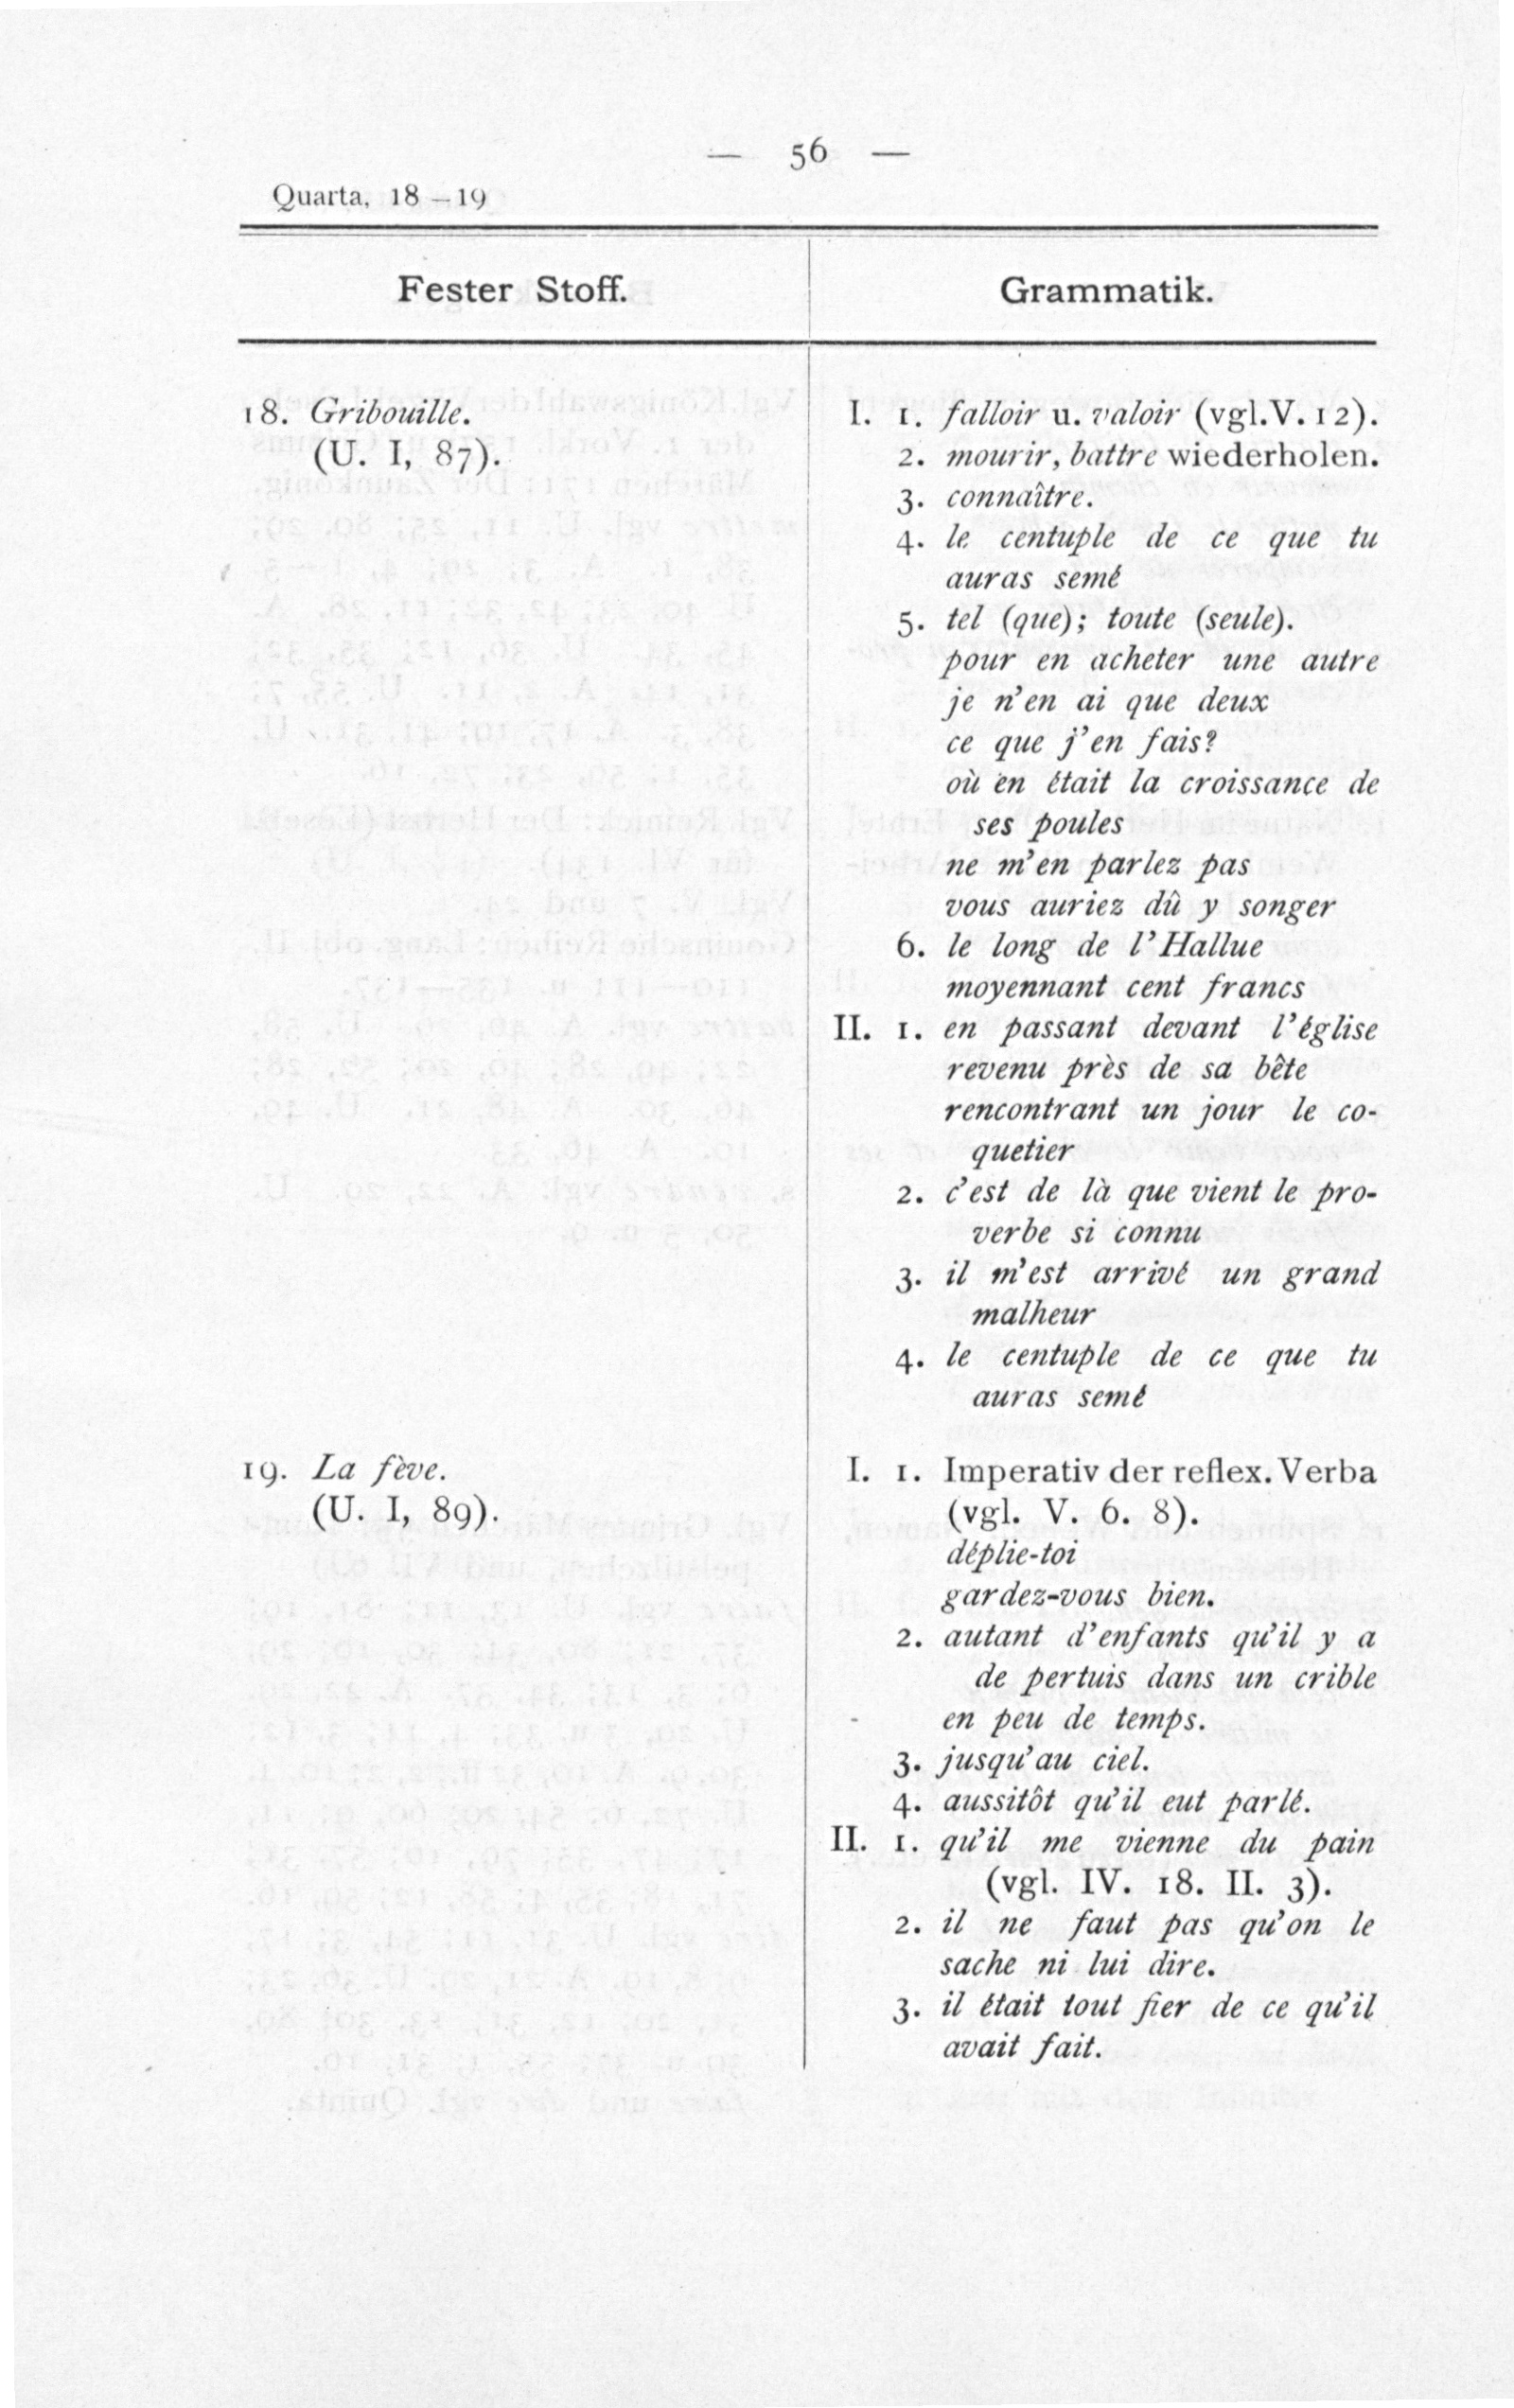 — 56 —
Quarta, 18–19
Fester Stoff.
Grammatik.
18. Gribouille.
(U. I, 87).
I. 1. falloir u. valoir (vgl. V. 12).
2. mourir, battre wiederholen.
3. connaître.
4. le centuple de ce que tu
auras semé
5. tel (que); toute (seule).
pour en acheter une autre
je n'en ai que deux
ce que j'en fais?
où en était la croissance de
ses poules
ne m'en parlez pas
vous auriez dû y songer
6. le long de l'Hallue
moyennant cent francs
II. 1. en passant devant l'église
revenu près de sa bête
rencontrant un jour le co-
quetier
2. c'est de là que vient le pro-
verbe si connu
3. il m'est arrivé un grand
malheur
4. le centuple de ce que tu
auras semé
19. La fève.
(U. I, 89).
I. 1. Imperativ der reflex. Verba
(vgl. V. 6. 8).
déplie-toi
gardez-vous bien.
2. autant d'enfants qu'il y a
de pertuis dans un crible
en peu de temps.
3. jusqu'au ciel.
4. aussitôt qu'il eut parlé.
II. 1. qu'il me vienne du pain
(vgl. IV. 18. II. 3).
2. il ne faut pas qu'on le
sache ni lui dire.
3. il était tout fier de ce qu'il
avait fait.